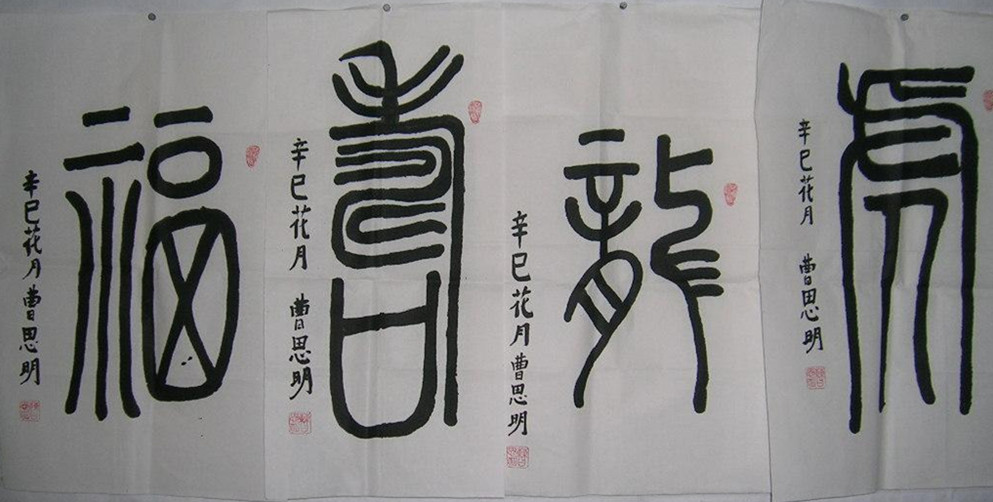 福
辛巳花月曹思明
壽
辛巳花月 曹思明
龍
辛巳花月曹思明
虎
辛巳花月 曹思明